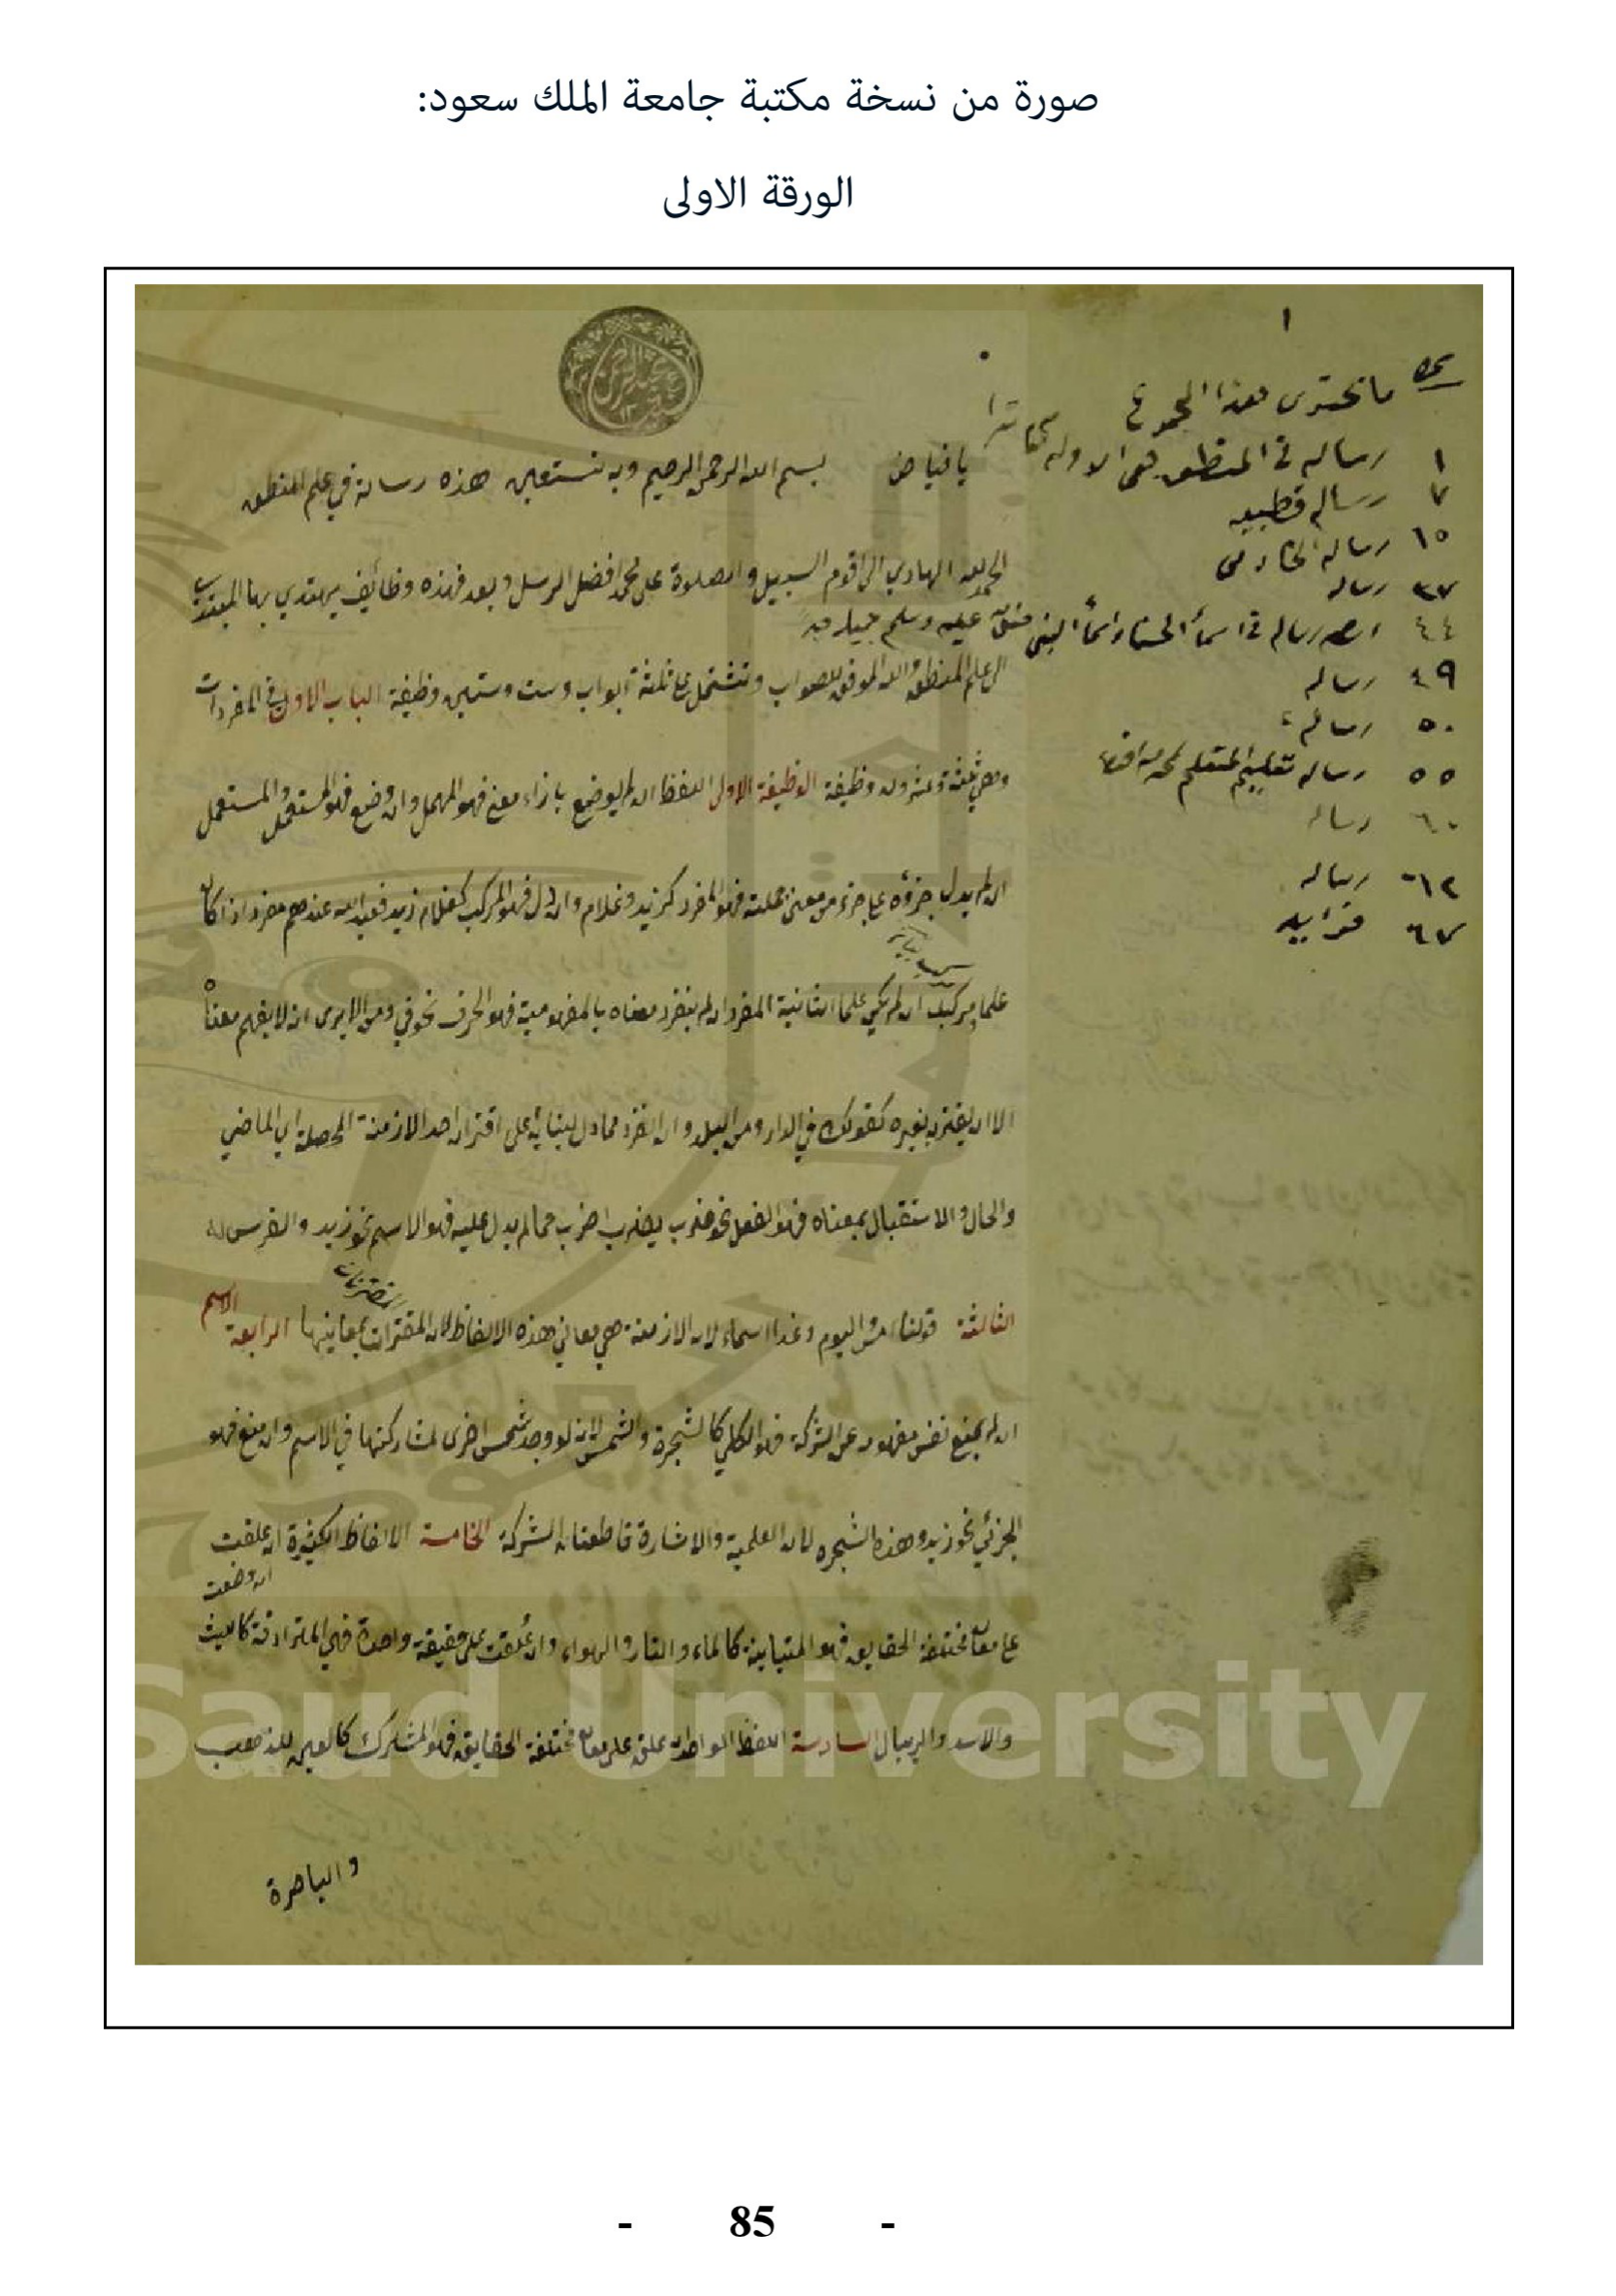 صورة من نسخة مكتبة جامعة الملك سعود:
الورقة الاولى
١
ما تحتوى هذا المجموع
١ رساله فى المنطق هى الاوله
٧ رساله قطبيه
١٥ رساله
٣٧ رساله
٤٤ رساله فى اسمأ الحسنا واسمأ النبى صلى الله عليه وسلم
٤٩ رساله
٥٠ رساله
٥٥ رساله تعليم المتعلم
٦٠ رساله
٦٢ رساله
٦٧ فوايد
يا فياض
بسم الله الرحمن الرحيم وبه نستعين هذه رسالة في علم المنطق
الحمد لله الهادي الى اقوم السبيل والصلوة على محمد افضل الرسل وبعد فهذه وظائف يهتدي بها المبتدى
الى علم المنطق والله الموفق للصواب وتشتمل على ثلثة ابواب وست وستين وظيفة الباب الاول في المفردات
وهي ثلثة وعشرون وظيفة الوظيفة الاولى اللفظ ان لم يوضع بازاء معنى فهو المهمل وان وضع فهو المستعمل والمستعمل
ان لم يدل جزؤه على جزء من معنى جملته فهو المفرد كزيد وغلام وان دل فهو المركب كغلام زيد فعبد الله عندهم مفرد اذا كان
علما ومركب ان لم يكن علما الثانية المفرد ان لم ينفرد معناه بالمفهومية فهو الحرف نحو في ومن الا يرى انه لا يفهم معناه
الا ان يقترن بغيره كقولك في الدار ومن البلد وان انفرد فما دل ببنائه على اقتران احد الازمنة المحصلة اي الماضي
والحال والاستقبال بمعناه فهو الفعل نحو ضرب يضرب اضرب فما لم يدل عليه فهو الاسم نحو زيد والفرس له
الثالثة قولنا امس واليوم وغدا اسماء لان الازمنة هي معاني هذه الالفاظ لا المقترنات بمعانيها الرابعة الاسم
ان لم يمنع نفس مفهومه عن الشركة فهو الكلي كالشجرة والشمس لانه لو وجد شمس اخرى لشاركتها في الاسم وان منع فهو
الجزئي نحو زيد وهذه الشجره لان العلمية والاشارة قاطعتان الشركة الخامسة الالفاظ الكثيرة ان علقت
ان وضعت
على معان مختلفة الحقايق فهو المتباينة كالماء والنار والهواء وان علقت على حقيقة واحدة فهي المترادفة كالليث
والاسد والريبال السادسة اللفظ الواحد ان علق على معان مختلفة الحقايق فهو المشترك كالعين للذهب
والباصرة
Saud University
- 85 -